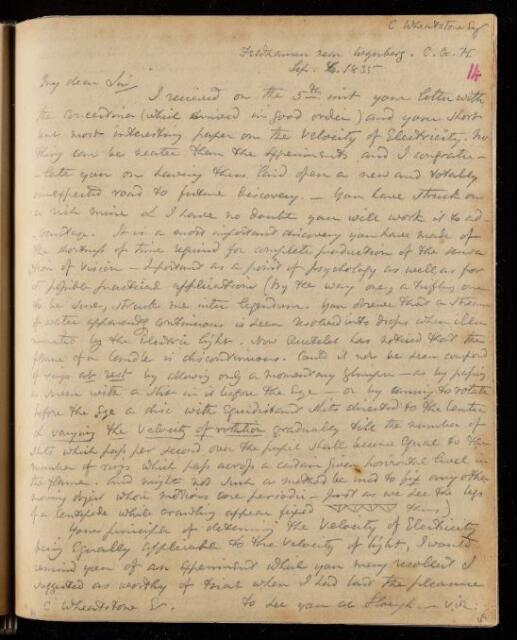 C Wheatstone Esq
Feldhausen near Wynberg. C. G. H.
Sep. 6. 1835
14
My dear Sir
I received on the 5th inst your letter with
the concertina (which arrived in good order) and your short
but most interesting paper on the Velocity of Electricity. No
thing can be neater than the experiments and I congratu-
-late you on having thus laid open a new and totally
unexpected road to future discovery. — You have struck on
a rich mine & I have no doubt you will work it to ad
-vantage. It is a most important discovery you have made of
the shortness of time required for complete production of the sensa
tion of Vision — Important as a point of psychology as well as for
its possible practical applications (By the way one, a trifling one
to be sure, struck me inter legendum. You observe that a stream
of water apparently continuous is seen resolved into drops when illu
minated by the Electric light. Now has noticed that the
flame of a Candle is discontinuous. Could it not be seen composed
of rings at rest by allowing only a momentary glimpse — as by passing
a screen with a slit in it before the Eye — or by causing to rotate
before the Eye a disc with equidistant slits directed to the Center
& varying the Velocity of rotation gradually till the number of
slits which pass per second over the pupil shall become equal to the
number of rings which pass across a certain given horizontal level in
the flame. And might not such a method be used to fix any other
moving object whose motions are periodic — Just as we see the legs
of a Centipede while crawling appear fixed thus)
Your principle of determining the Velocity of Electricity
being Equally applicable to the Velocity of light, I would
remind you of an Experiment which you may recollect I
suggested as worthy of trial when I had last the pleasure
C Wheatstone Esq. to see you at Slough. — viz: